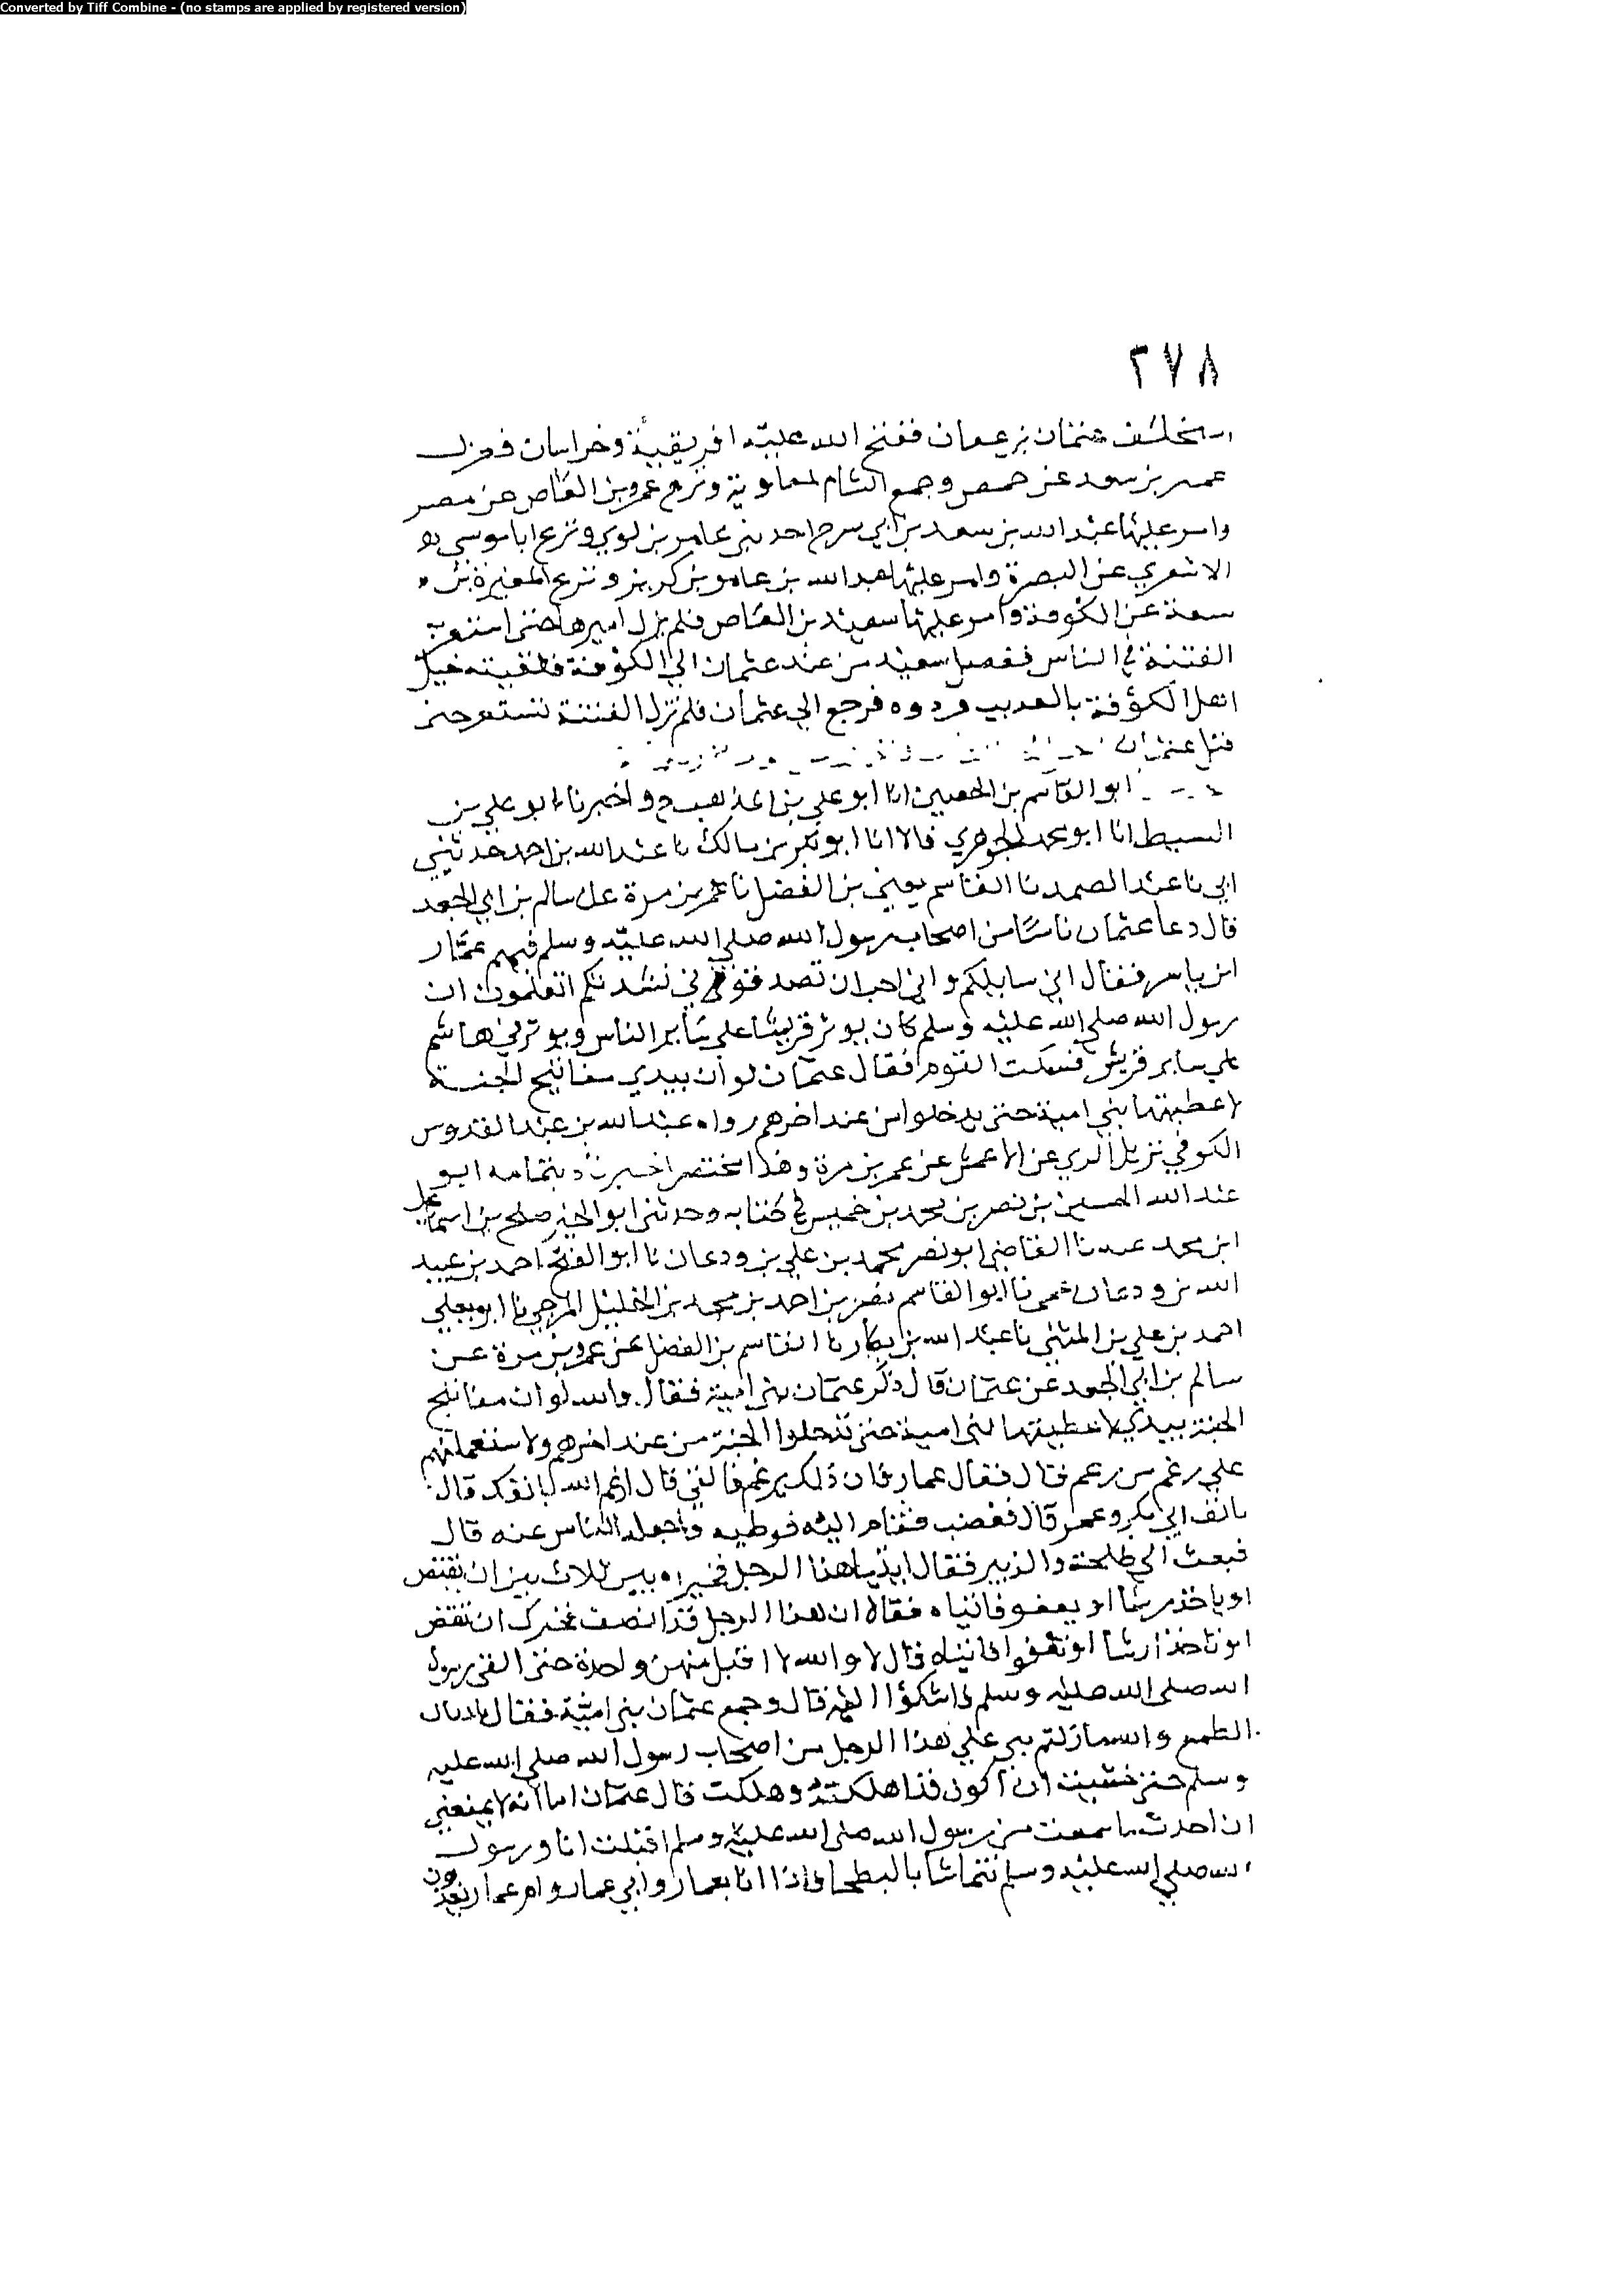 Converted by Tiff Combine - (no stamps are applied by registered version)
٢٧٨
استخلف عثمان بن عفان ففتح الله عليه افريقية وخراسان فنزل
عمير بن سعد عن حمص وجمع الشام لمعاوية ونزع عمرو بن العاص عن مصر
وامر عليها عبد الله بن سعد بن ابي سرح احد بني عامر بن لوي ونزع ابا موسى
الاشعري عن البصرة وامر عليها عبد الله بن عامر بن كريز ونزع المغيرة بن
شعبة عن الكوفة وامر عليها سعيد بن العاص فلم يزل اميرها حتى استعرت
الفتنة في الناس ففصل سعيد من عند عثمان الى الكوفة فلقيته خيل
اهل الكوفة بالعذيب فردوه فرجع الى عثمان فلم تزل الفتنة تستعر حتى
قتل عثمان
ابو القاسم بن الحصين انا ابو علي بن المذهب ح واخبرنا ابو علي بن
السبط انا ابو محمد الجوهري قالا انا ابو بكر بن مالك نا عبد الله بن احمد حدثني
ابي نا عبد الصمد نا القاسم يعني بن الفضل نا عمرو بن مرة عن سالم بن ابي الجعد
قال دعا عثمان ناسا من اصحاب رسول الله صلى الله عليه وسلم فيهم عمار
ابن ياسر فقال اني سايلكم واني احب ان تصدقوني نشدتكم اتعلمون ان
رسول الله صلى الله عليه وسلم كان يوثر قريشا على ساير الناس ويوثر بني هاشم
على ساير قريش فسكت القوم فقال عثمان لو ان بيدي مفاتيح الجنة
لاعطيتها بني امية حتى يدخلوا من عند اخرهم رواه عبد الله بن عبد القدوس
الكوفي نزيل الري عن الاعمش عن عمر بن مرة وهذا مختصر اخبرناه بتمامه ابو
عبد الله الحسين بن نصر بن محمد بن خميس في كتابه وحدثني ابو الخير صالح بن اسماعيل
ابن محمد عنه نا القاضي ابو نصر محمد بن علي بن ودعان نا ابو الفتح احمد بن عبيد
الله بن ودعان عمي نا ابو القاسم نصر بن احمد بن محمد بن الخليل المرجي نا ابو يعلي
احمد بن علي بن المثنى نا عبد الله بن بكار نا القاسم بن الفضل عن عمرو بن مرة عن
سالم بن ابي الجعد عن عثمان قال ذكر عثمان بني امية فقال والله لو ان مفاتيح
الجنة بيدي لاعطيتها لبني امية حتى تدخلوا الجنة من عند اخرهم ولاستعملنهم
على رغم من رغم قال فقال عمار فان ذلك يرغم فانفي قال ارغم الله بانفك قال
بانف ابي بكر وعمر قال فغضب فقام اليه فوطيه واجفله الناس عنه قال
فبعث الى طلحة والزبير فقال ايتيا هذا الرجل فخيراه بين ثلاث بين ان يقتص
او ياخذ ارشا او يعفو فاتياه فقالا ان هذا الرجل قد انصف فخيرك ان تقتص
او تاخذ ارشا او تعفو فاتياه قال لا والله لا اقبل منهن واحدة حتى القى رسول
الله صلى الله عليه وسلم فاشكوا اليه قال وجمع عثمان بني امية فقال
الطمع والله مازلتم بي على هذا الرجل من اصحاب رسول الله صلى الله عليه
وسلم حتى خشيت ان اكون قد اهلكته وهلكت قال عثمان اما انه لا يمنعني
ان احدث ما سمعت من رسول الله صلى الله عليه وسلم اقبلت انا ورسول
الله صلى الله عليه وسلم نتماشا بالبطحا فاذا انا بعمار وابي عمار وام عمار يعذبون